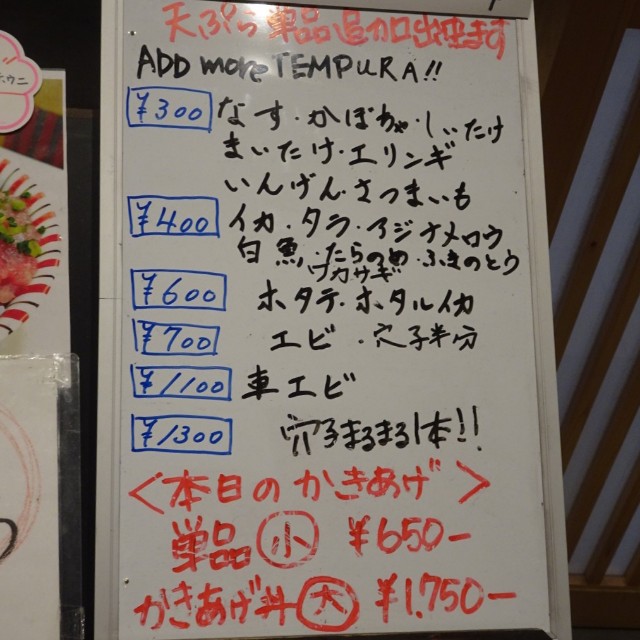 天ぷら単品追加出来ます
ADD more TEMPURA!!
¥300 なす・かぼちゃ・しいたけ
まいたけ・エリンギ
いんげん・さつまいも
¥400 イカ・タラ・アジナメロウ
白魚・たらのめ・ふきのとう
ワカサギ
¥600 ホタテ・ホタルイカ
¥700 エビ・穴子半分
¥1100 車エビ
¥1300 穴子まるまる1本!!
<本日のかきあげ>
単品 小 ¥650-
かきあげ丼 大 ¥1.750-